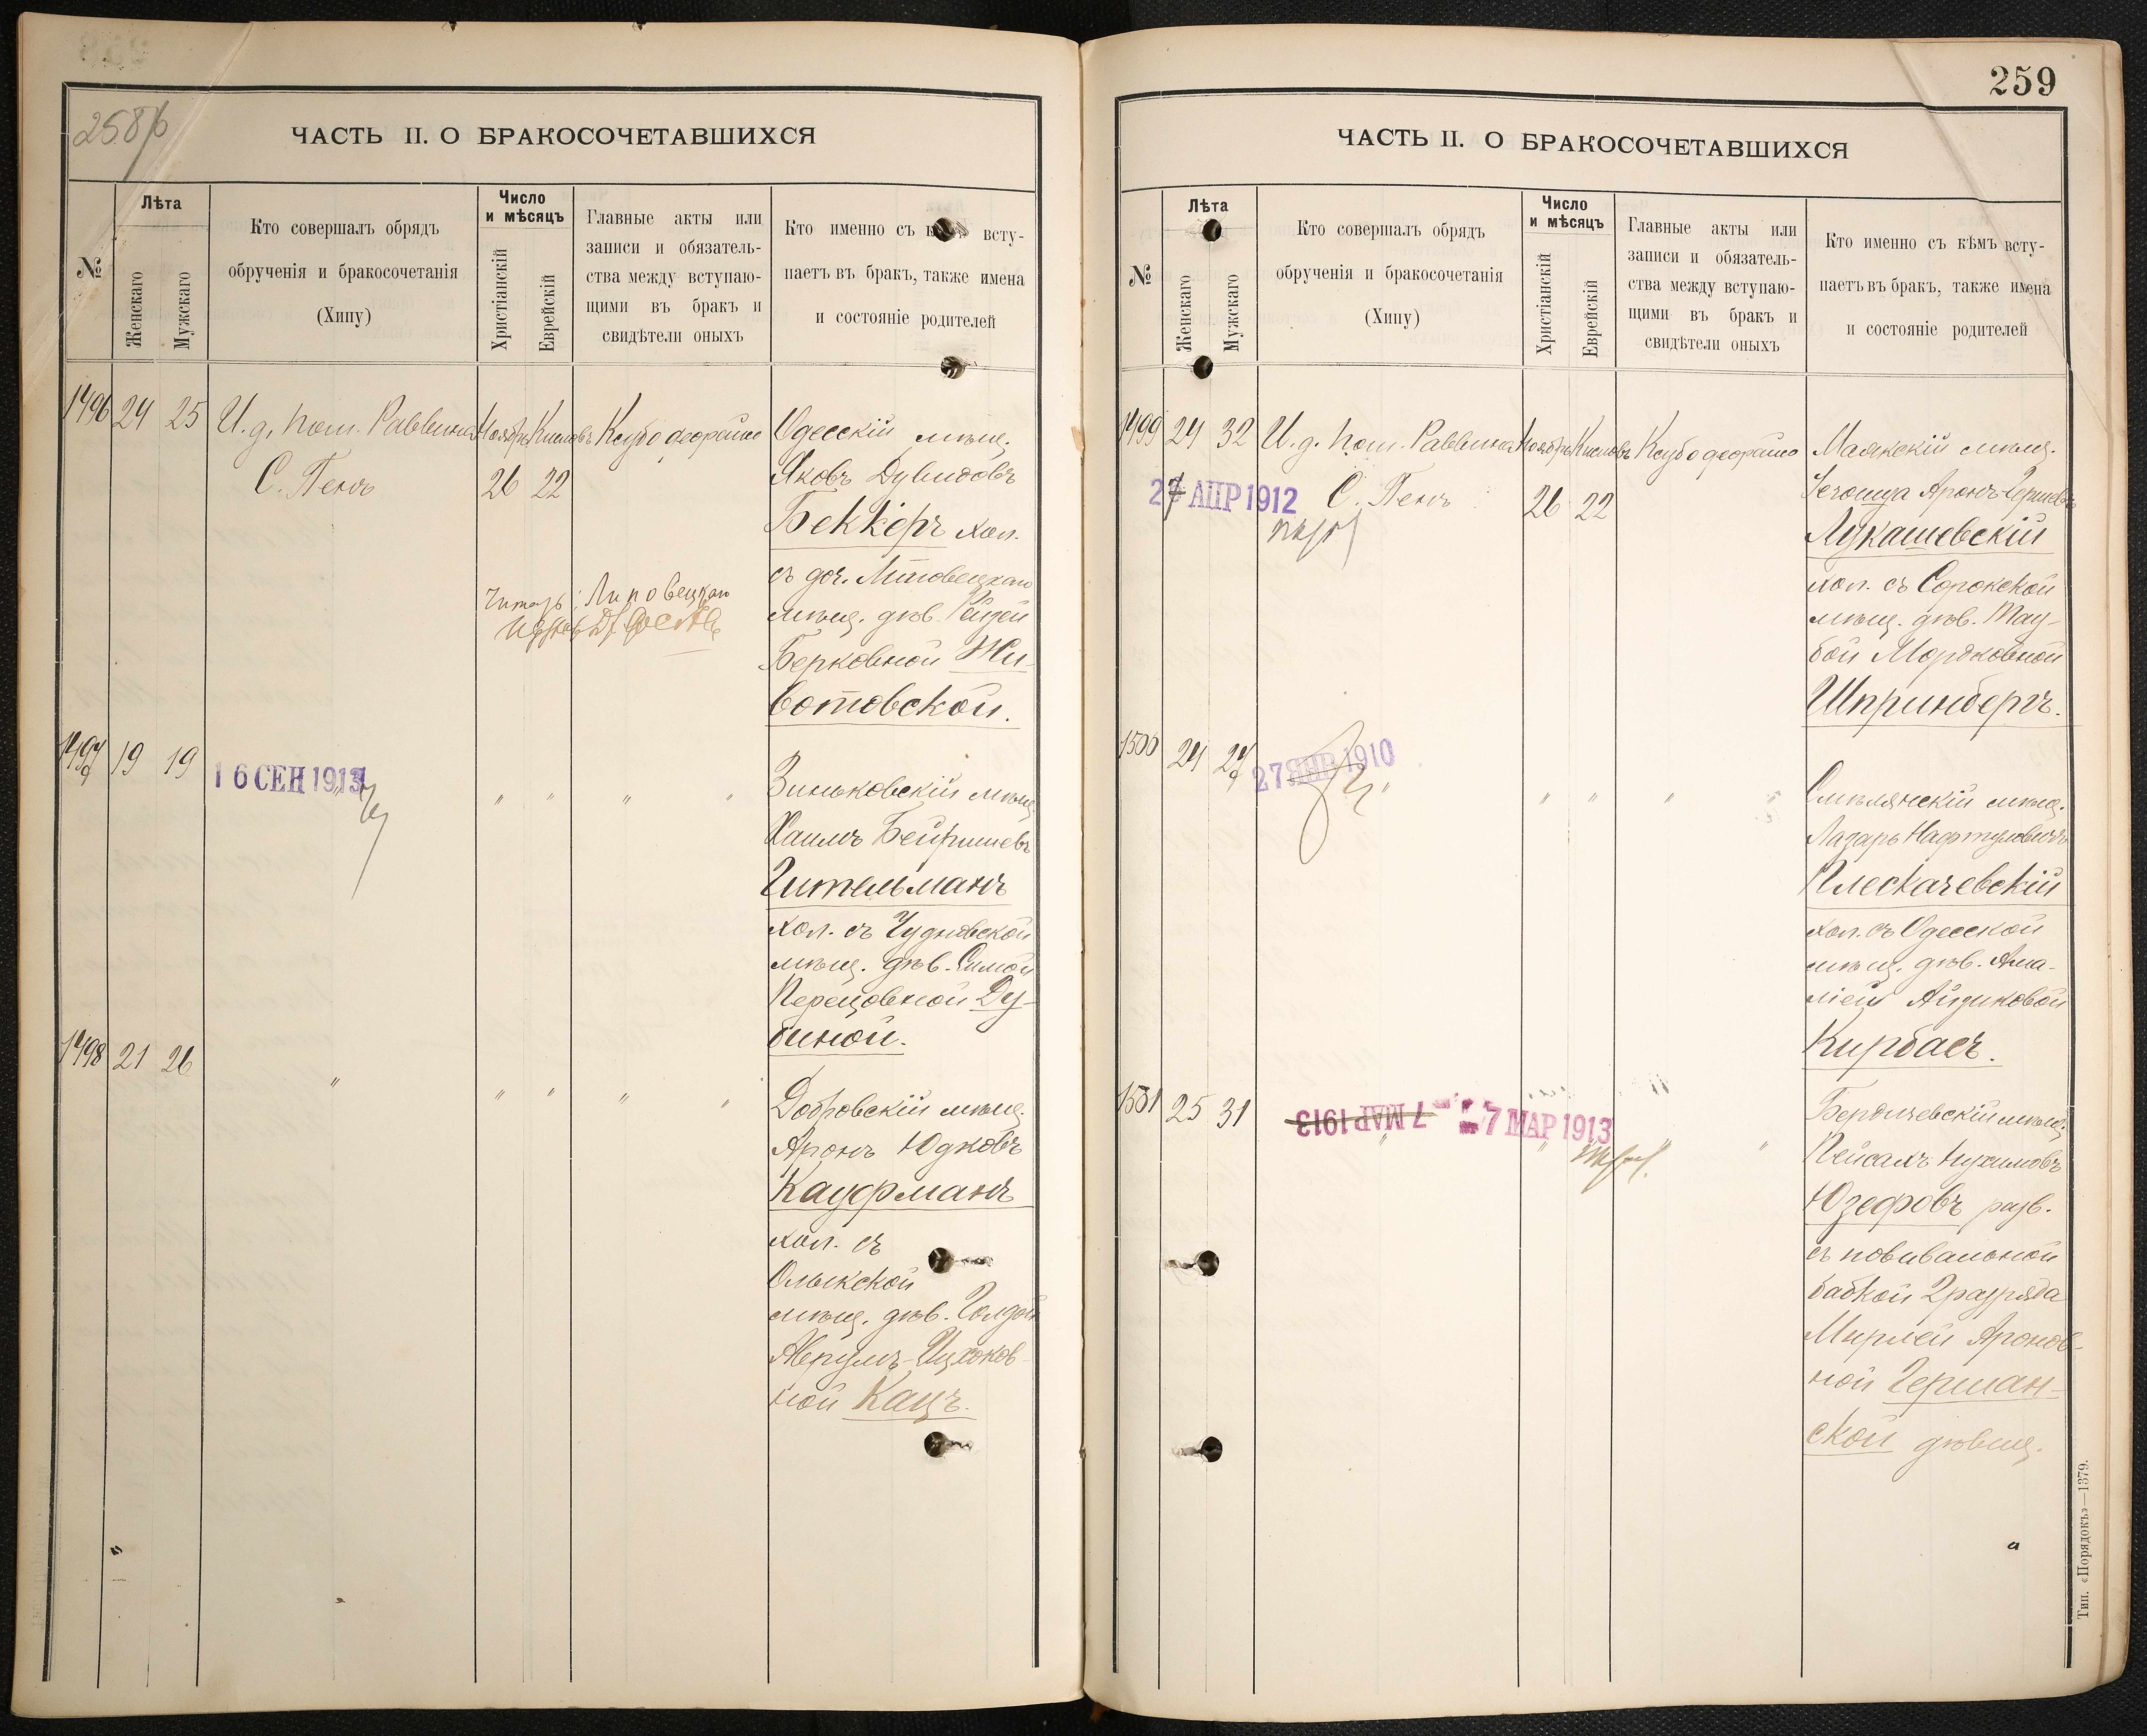 258/б
ЧАСТЬ II. О БРАКОСОЧЕТАВШИХСЯ
№
Лѣта
Женскаго
Мужскаго
Кто совершалъ обрядъ
обрученія и бракосочетанія
(Хипу)
Число
и мѣсяцъ
Христіанскій
Еврейскій
Главные акты или
записи и обязатель-
ства между вступаю-
щими въ бракъ и
свидѣтели оныхъ
Кто именно съ всту-
паетъ въ бракъ, также имена
и состояніе родителей
1496 24 25 И. д. пом. Раввина Ноябрь Кислевъ Ксубо деорайсо
С. Пенъ 26 22
Одесскій мѣщ.
Яковъ Дувидовъ
Беккеръ хол.
съ доч. Липовецкаго
мѣщ. дѣв. Рейзей
Берковной Жи-
вотовской.
Читать: Липовецкаго
1497 19 19
16 СЕН 1913
" " " "
Зиньковскій мѣщ.
Хаимъ Бейришевъ
Гительманъ
хол. съ Чудновской
мѣщ. дѣв. Симой
Перецовной Ду-
биной.
1498 21 26 " " " " "
Добровскій мѣщ.
Аронъ Юдковъ
Кауфманъ
хол. съ
Олыкской
мѣщ. дѣв. Голдой
Ицков-
ной Кацъ.
259
ЧАСТЬ II. О БРАКОСОЧЕТАВШИХСЯ
№
Лѣта
Женскаго
Мужскаго
Кто совершалъ обрядъ
обрученія и бракосочетанія
(Хипу)
Число
и мѣсяцъ
Христіанскій
Еврейскій
Главные акты или
записи и обязатель-
ства между вступаю-
щими въ бракъ и
свидѣтели оныхъ
Кто именно съ кѣмъ всту-
паетъ въ бракъ, также имена
и состояніе родителей
1499 24 32 И. д. пом. Раввина Ноябрь Кислевъ Ксубо деорайсо
27 АПР 1912
С. Пенъ 26 22
Маякскій мѣщ.
Аронъ Гершевъ
Лукашевскій
хол. съ Сорокской
мѣщ. дѣв. Тау-
бой Мордковной
Шпринбергъ.
1500 24 27
27 ЯНВ 1910
" " " " "
Смѣлянскій мѣщ.
Лазарь Нафтуловичъ
Плескачевскій
хол. съ Одесской
мѣщ. дѣв. Ама-
ліей Айзиковой
Кирбасъ.
1501 25 31
7 МАР 1913 7 МАР 1913
" " " "
Бердичевскій мѣщ.
Пейсахъ Нухимовъ
Юзефовъ разв.
съ повивальной
бабкой 2 разряда
Мирлей Аронов-
ной Герман-
ской дѣвиц.
Тип. «Порядокъ»—1379.